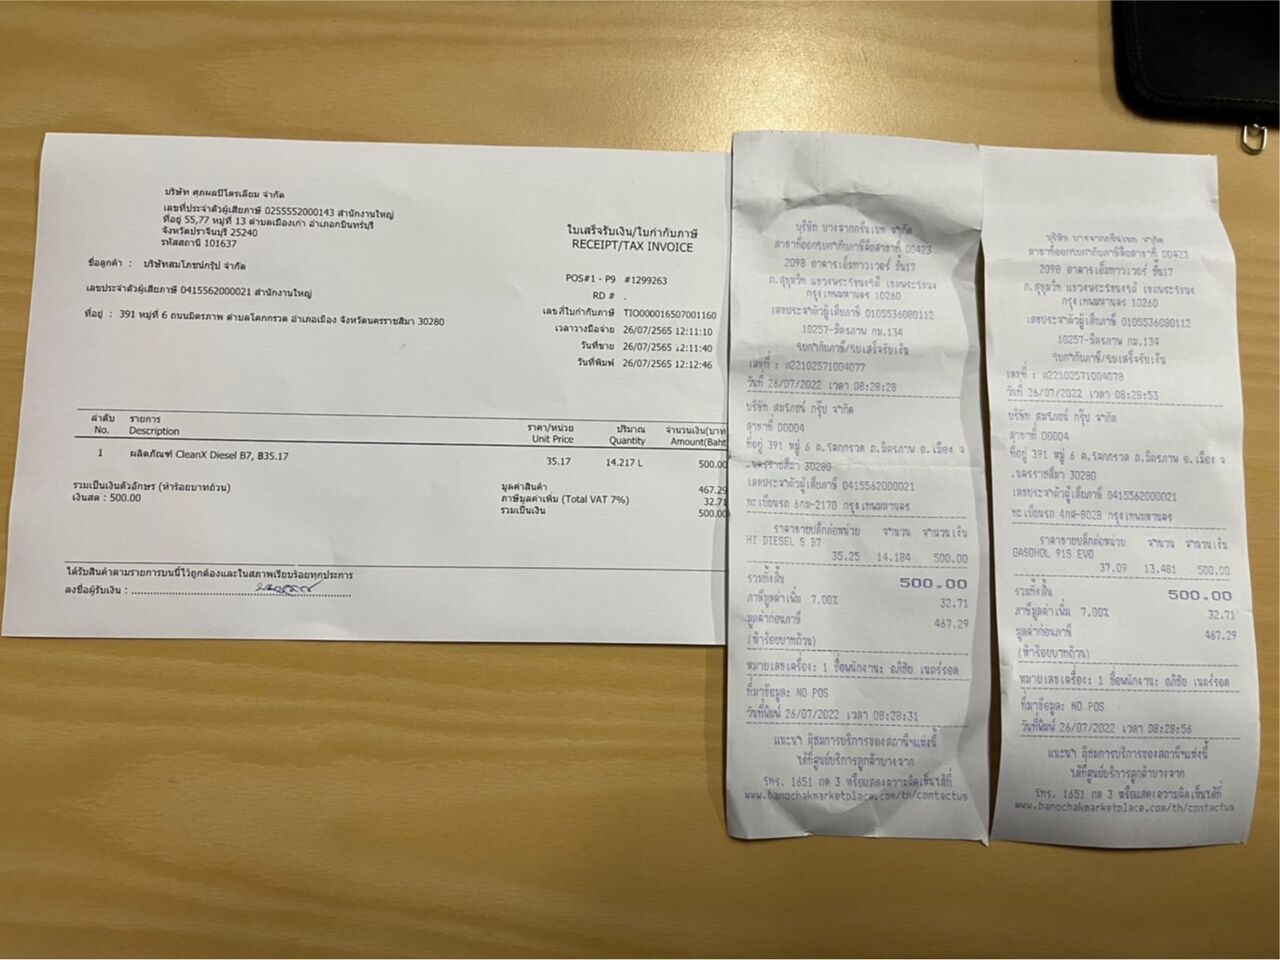 บริษัท ศุภผลปิโตรเลียม จำกัด
เลขที่ประจำตัวผู้เสียภาษี 0255552000143 สำนักงานใหญ่
ที่อยู่ 55,77 หมู่ที่ 13 ตำบลเมืองเก่า อำเภอกบินทร์บุรี
จังหวัดปราจีนบุรี 25240
รหัสสถานี 101637
ใบเสร็จรับเงิน/ใบกำกับภาษี
RECEIPT/TAX INVOICE
ชื่อลูกค้า : บริษัทสมโภชน์กรุ๊ป จำกัด
เลขประจำตัวผู้เสียภาษี 0415562000021 สำนักงานใหญ่
ที่อยู่ : 391 หมู่ที่ 6 ถนนมิตรภาพ ตำบลโคกกรวด อำเภอเมือง จังหวัดนครราชสีมา 30280
POS#1 - P9 #1299263
RD # .
เลขที่ใบกำกับภาษี TIO000016507001160
เวลาวางมือจ่าย 26/07/2565 12:11:10
วันที่ขาย 26/07/2565 12:11:40
วันที่พิมพ์ 26/07/2565 12:12:46
ลำดับ รายการ ราคา/หน่วย ปริมาณ จำนวนเงิน(บาท
No. Description Unit Price Quantity Amount(Baht
1 ผลิตภัณฑ์ CleanX Diesel B7, ฿35.17 35.17 14.217 L 500.00
รวมเป็นเงินตัวอักษร (ห้าร้อยบาทถ้วน)
เงินสด : 500.00
มูลค่าสินค้า 467.29
ภาษีมูลค่าเพิ่ม (Total VAT 7%) 32.71
รวมเป็นเงิน 500.00
ได้รับสินค้าตามรายการบนนี้ไว้ถูกต้องและในสภาพเรียบร้อยทุกประการ
ลงชื่อผู้รับเงิน :
บริษัท บางจากกรีนเนท จำกัด
สาขาที่ออกใบกำกับภาษีคือสาขาที่ 00423
2098 อาคารเอ็มทาวเวอร์ ชั้น17
ถ.สุขุมวิท แขวงพระโขนงใต้ เขตพระโขนง
กรุงเทพมหานคร 10260
เลขประจำตัวผู้เสียภาษี 0105536080112
10257-มิตรภาพ กม.134
ใบกำกับภาษี/ใบเสร็จรับเงิน
เลขที่ : m22102571004077
วันที่ 26/07/2022 เวลา 08:28:28
บริษัท สมโภชน์ กรุ๊ป จำกัด
สาขาที่ 00004
ที่อยู่ 391 หมู่ 6 ต.โคกกรวด ถ.มิตรภาพ อ.เมือง จ
.นครราชสีมา 30280
เลขประจำตัวผู้เสียภาษี 0415562000021
ทะเบียนรถ 6กม-2170 กรุงเทพมหานคร
ราคาขายปลีกต่อหน่วย จำนวน จำนวนเงิน
HI DIESEL S B7
35.25 14.184 500.00
รวมทั้งสิ้น 500.00
ภาษีมูลค่าเพิ่ม 7.00% 32.71
มูลค่าก่อนภาษี 467.29
(ห้าร้อยบาทถ้วน)
หมายเลขเครื่อง: 1 ชื่อพนักงาน: อภิชัย เนตร์รอด
ที่มาข้อมูล: NO POS
วันที่พิมพ์ 26/07/2022 เวลา 08:28:31
แนะนำ ติชมการบริการของสถานีฯแห่งนี้
ได้ที่ศูนย์บริการลูกค้าบางจาก
โทร. 1651 กด 3 หรือแสดงความคิดเห็นได้ที่
www.bangchakmarketplace.com/th/contactus
บริษัท บางจากกรีนเนท จำกัด
สาขาที่ออกใบกำกับภาษีคือสาขาที่ 00423
2098 อาคารเอ็มทาวเวอร์ ชั้น17
ถ.สุขุมวิท แขวงพระโขนงใต้ เขตพระโขนง
กรุงเทพมหานคร 10260
เลขประจำตัวผู้เสียภาษี 0105536080112
10257-มิตรภาพ กม.134
ใบกำกับภาษี/ใบเสร็จรับเงิน
เลขที่ : m22102571004078
วันที่ 26/07/2022 เวลา 08:28:53
บริษัท สมโภชน์ กรุ๊ป จำกัด
สาขาที่ 00004
ที่อยู่ 391 หมู่ 6 ต.โคกกรวด ถ.มิตรภาพ อ.เมือง จ
.นครราชสีมา 30280
เลขประจำตัวผู้เสียภาษี 0415562000021
ทะเบียนรถ 4กศ-8028 กรุงเทพมหานคร
ราคาขายปลีกต่อหน่วย จำนวน จำนวนเงิน
GASOHOL 91S EVO
37.09 13.481 500.00
รวมทั้งสิ้น 500.00
ภาษีมูลค่าเพิ่ม 7.00% 32.71
มูลค่าก่อนภาษี 467.29
(ห้าร้อยบาทถ้วน)
หมายเลขเครื่อง: 1 ชื่อพนักงาน: อภิชัย เนตร์รอด
ที่มาข้อมูล: NO POS
วันที่พิมพ์ 26/07/2022 เวลา 08:28:56
แนะนำ ติชมการบริการของสถานีฯแห่งนี้
ได้ที่ศูนย์บริการลูกค้าบางจาก
โทร. 1651 กด 3 หรือแสดงความคิดเห็นได้ที่
www.bangchakmarketplace.com/th/contactus